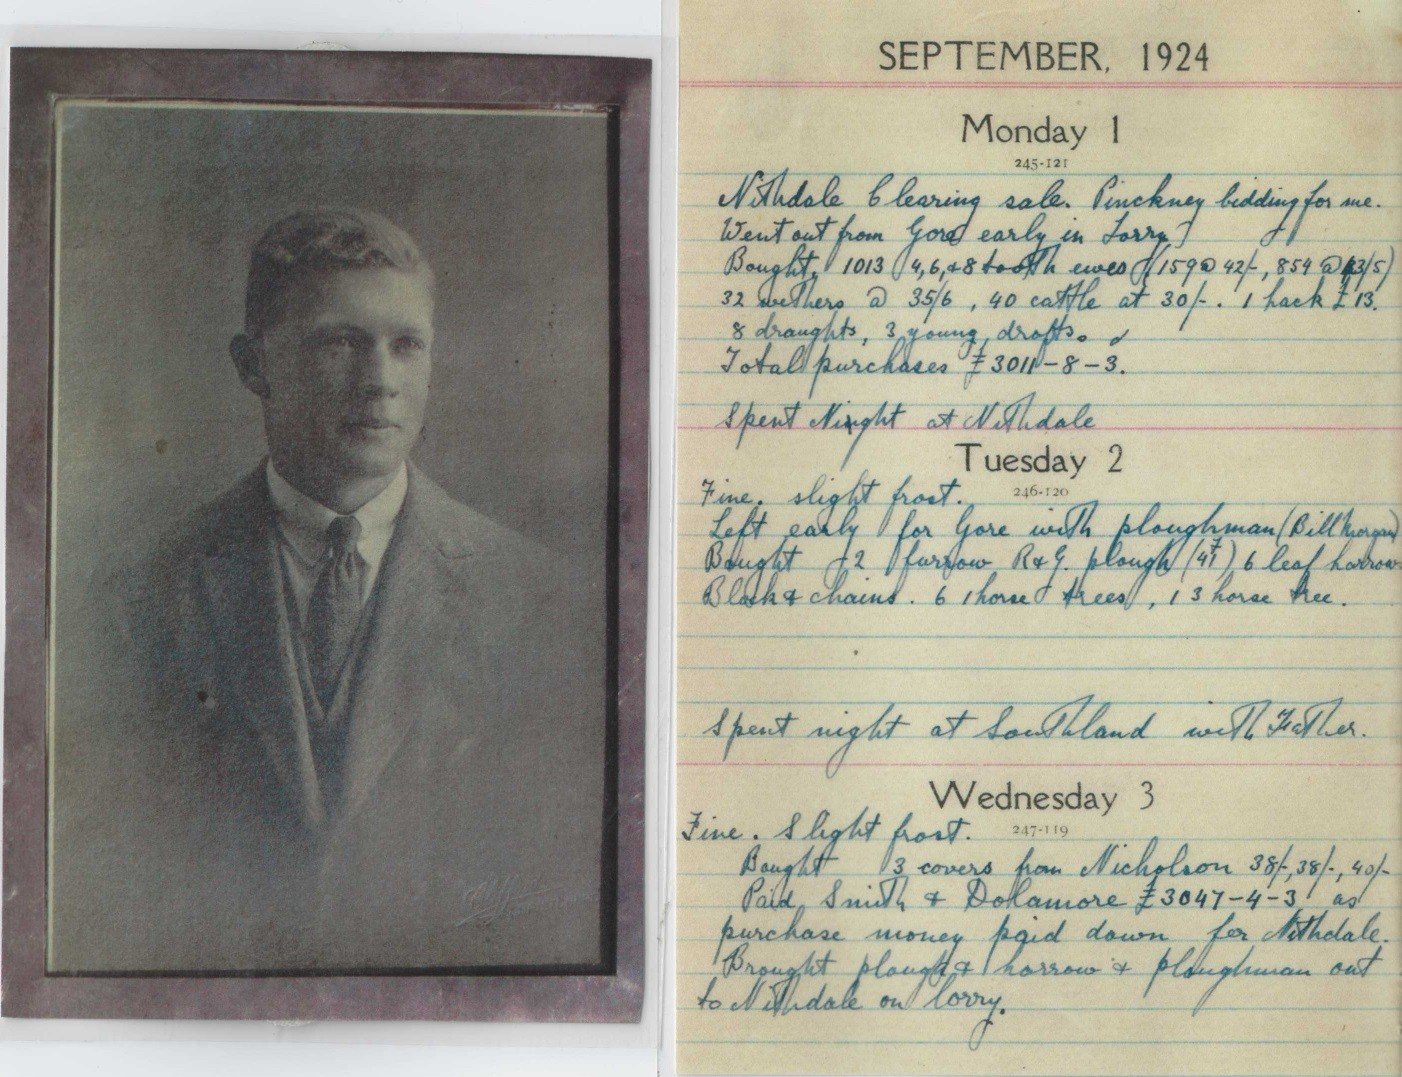 SEPTEMBER, 1924
Monday 1
245-121
Nithdale Clearing sale. Pinckney bidding for me.
Went out from Gore early in Lorry
Bought, 1013 4, 6, & 8 tooth ewes (159 @ 42/-, 854 @ 43/5)
32 wethers @ 35/6, 40 cattle at 30/-. 1 hack £13.
8 draughts, 3 young drafts.
Total purchases £3011-8-3.
Spent Night at Nithdale
Tuesday 2
246-120
Fine. slight frost.
Left early for Gore with ploughman (Bill Morgan)
Bought 2 furrow R&G. plough (£41) 6 leaf harrow
Block & chains. 6 1 horse trees, 1 3 horse tree.
Spent night at Southland with Father.
Wednesday 3
247-119
Fine. Slight frost.
Bought 3 covers from Nicholson 38/-, 38/-, 40/-
Paid Smith & Dolamore £3047-4-3 as
purchase money paid down for Nithdale.
Brought plough & harrow & ploughman out
to Nithdale on lorry.